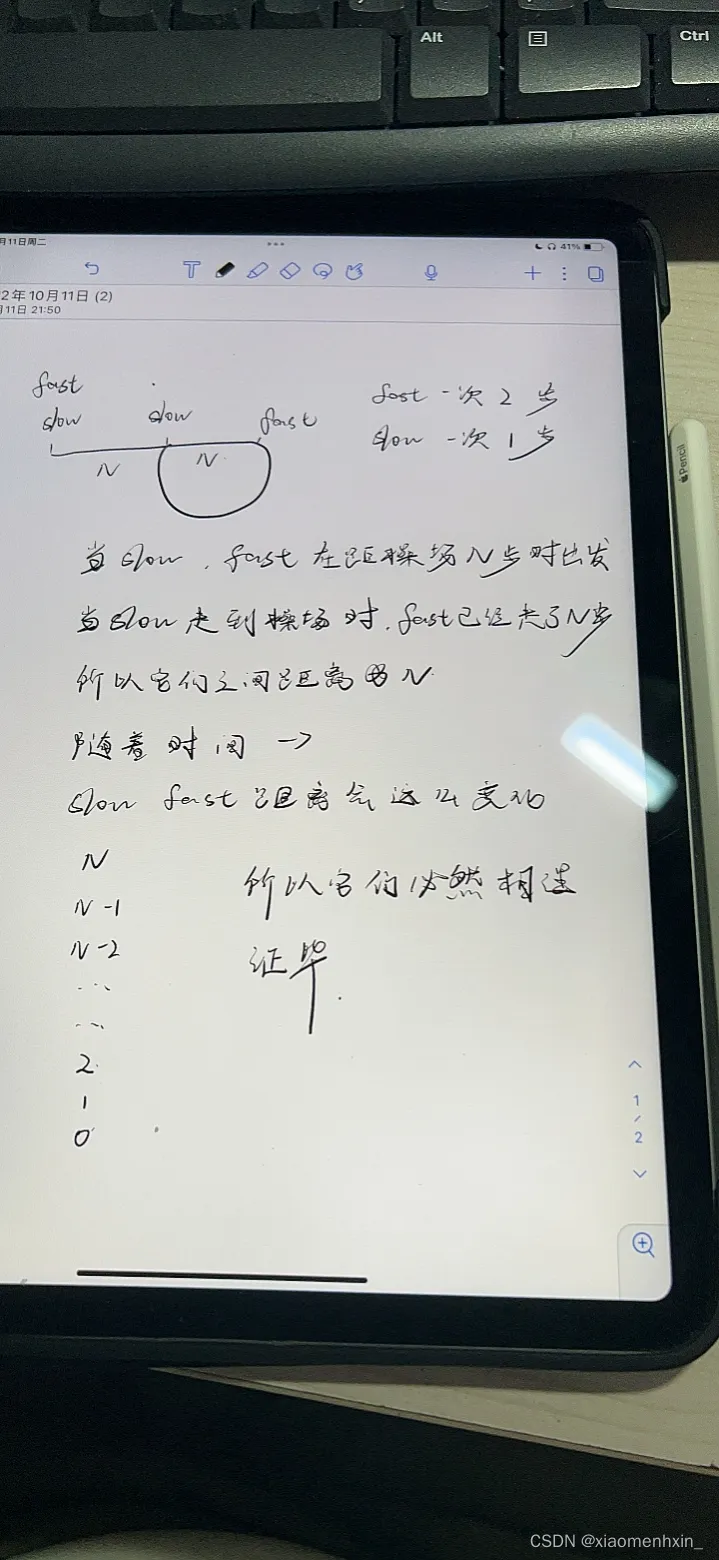 Alt
Ctrl
月11日周二
41%
2年10月11日 (2)
月11日 21:50
fast
slow
slow
fast
N
N
fast 一次 2 步
slow 一次 1 步
当slow, fast 在距操场N步时出发
当slow走到操场时,fast已经走了N步
所以它们之间距离为N
随着时间 →
slow fast 距离会这么变化
N
N-1
N-2
...
...
2
1
0
所以它们必然相逢
证毕.
1
/
2
Pencil
CSDN @xiaomenhxin_